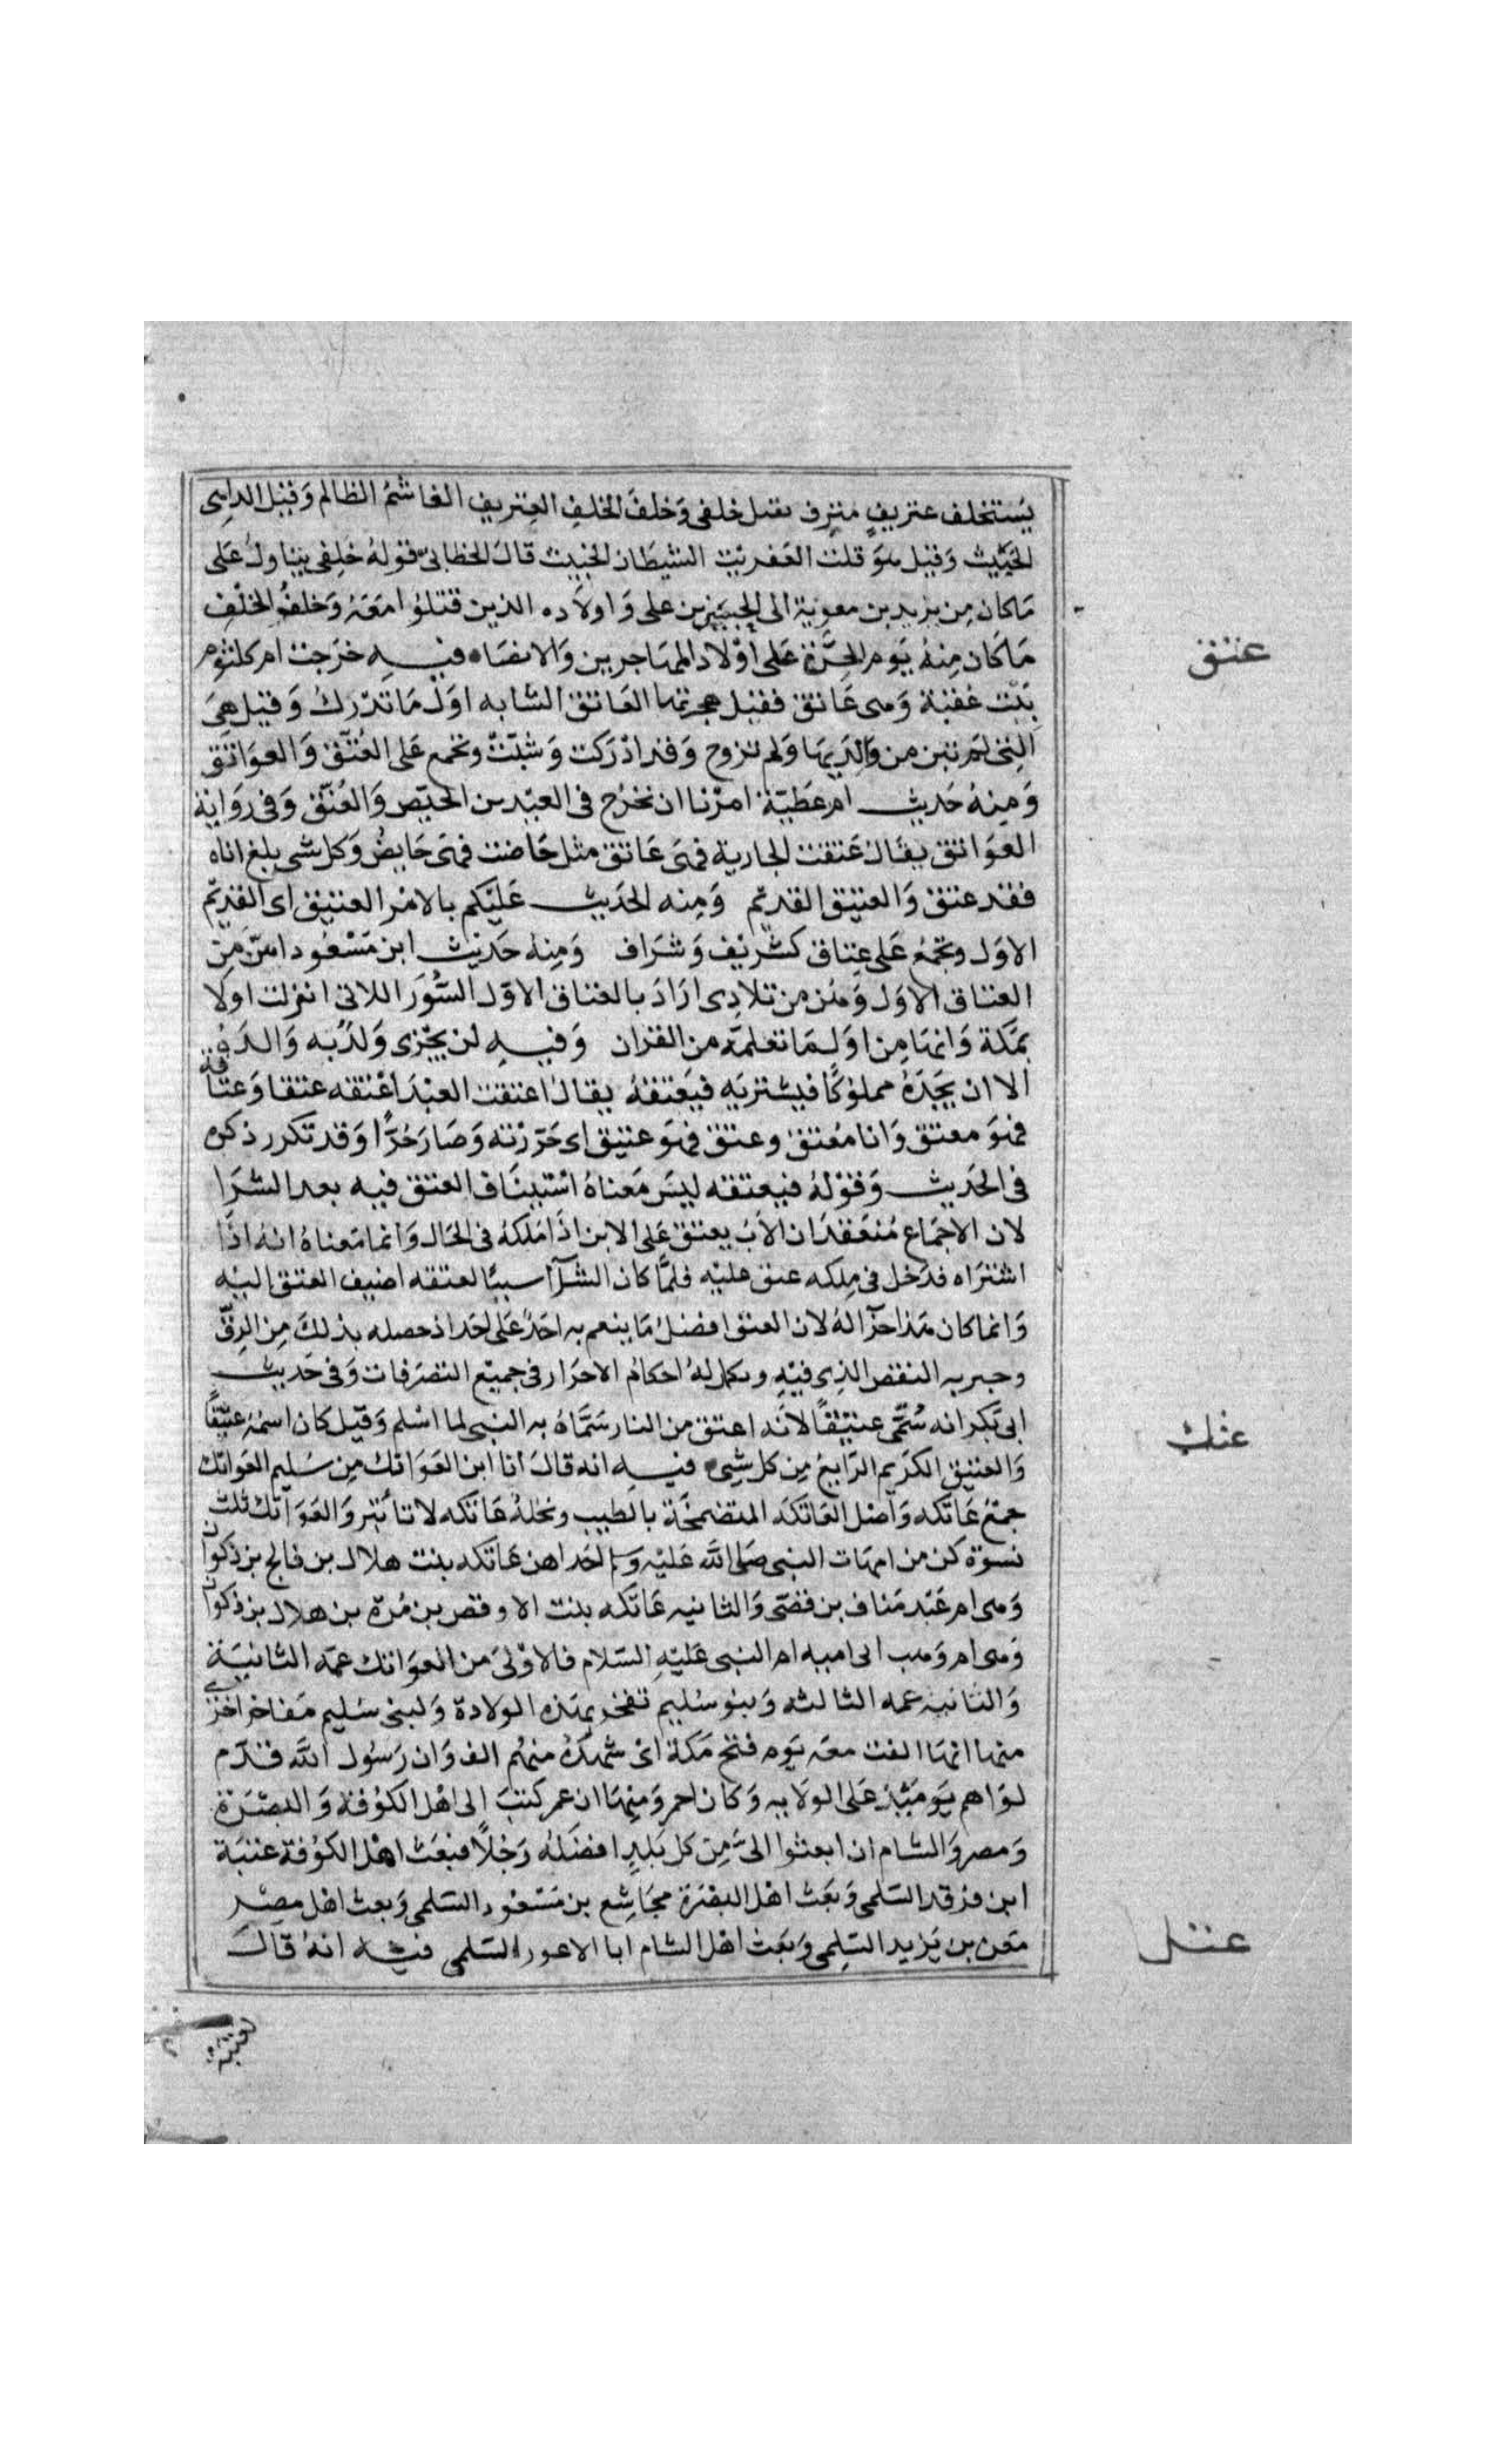 يستخلف عتريفٍ مترف يقتل خلفى وخلف الخلف العتريف الغاشم الظالم وقيل الداهى
الخبيث وقيل هو قلت العفريت الشيطان الخبيث قال الخطابى قوله خلفى يتناول على
ما كان من يزيد بن معوية الى الحسين بن على واولاده الذين قتلوا معه وخلف الخلف
ما كان منه يوم الحرة على اولاد المهاجرين والانصار فيه خرجت ام كلثوم
بنت عقبة وهى عاتق فقبل هجرتها العاتق الشابه اول ما تدرك وقيل هى
التى لم تبن من والديها ولم تزوج وقد ادركت وشبت وتجمع على العتق والعواتق
ومنه حديث ام عطية امرنا ان نخرج فى العيدين الحيض والعتق وفى رواية
العواتق يقال عتقت الجارية فهى عاتق مثل حاضت فهى حايض وكل شى بلغ اناه
فقد عتق والعتيق القديم ومنه الحديث عليكم بالامر العتيق اى القديم
الاول وتجمع على عتاق كشريف وشراف ومنه حديث ابن مسعود انهن من
العتاق الاول وهن من تلادى اراد بالعتاق الاول السور اللاتى انزلت اولا
بمكة وانها من اول ما تعلمه من القران وفيه لن يجزى ولد به والده
الا ان يجده مملوكا فيشتريه فيعتقه يقال اعتقت العبد اعتقه عتقا وعتاقة
فهو معتق وانا معتق وعتق فهو عتيق اى حررته وصار حرا وقد تكرر ذكره
فى الحديث وقوله فيعتقه ليس معناه استيناف العتق فيه بعد الشرا
لان الاجماع منعقد ان الاب يعتق على الابن اذا ملكه فى الحال وانما معناه انه اذا
اشتراه فدخل فى ملكه عتق عليه فلما كان الشرآ سببا لعتقه اضيف العتق اليه
وانما كان هذا جزآ له لان العتق افضل ما ينعم به احد على احد اذ خصله بذلك من الرق
وجبر به النقص الذى فيه وبكمل له احكام الاحرار فى جميع التصرفات وفى حديث
ابى بكر انه سُمّى عتيقًا لانه اعتق من النار سماه به النبى لما اسلم وقيل كان اسمه عتيقًا
والعتيق الكريم الرايع من كل شىء فيه انه قال انا ابن العواتك من سليم العواتك
جمع عاتكه واصل العاتكه المتضمخة بالطيب ونخله عاتكه لا تاتبر والعواتك ثلث
نسوة كن من امهات النبى صلى الله عليه وسلم احداهن عاتكه بنت هلال بن فالج بن ذكوان
وهى ام عبد مناف بن قصى والثانيه عاتكه بنت الاوقص بن مرة بن هلال بن ذكوان
وهى ام وهب ابى امنه ام النبى عليه السلام فالاولى من العواتك عمه الثانية
والثانيه عمه الثالثه وبنو سليم تفخر بهذه الولادة ولبنى سليم مفاخر اخرى
منها انها الفت معه يوم فتح مكة اى شهده منهم الف وان رسول الله قدم
لواهم يوميذ على الولايه وكان احمر ومنها ان عمر كتب الى اهل الكوفة والبصرة
ومصر والشام ان ابعثوا الىّ من كل بلدٍ افضله رجلا فبعث اهل الكوفة عتبة
ابن فرقد السلمى وبعث اهل البصرة مجاشع بن مسعود السلمى وبعث اهل مصر
معن بن يزيد السلمى وبعث اهل الشام ابا الاعور السلمى فيه انه قال
عتق
عتك
عتل
لعتبة